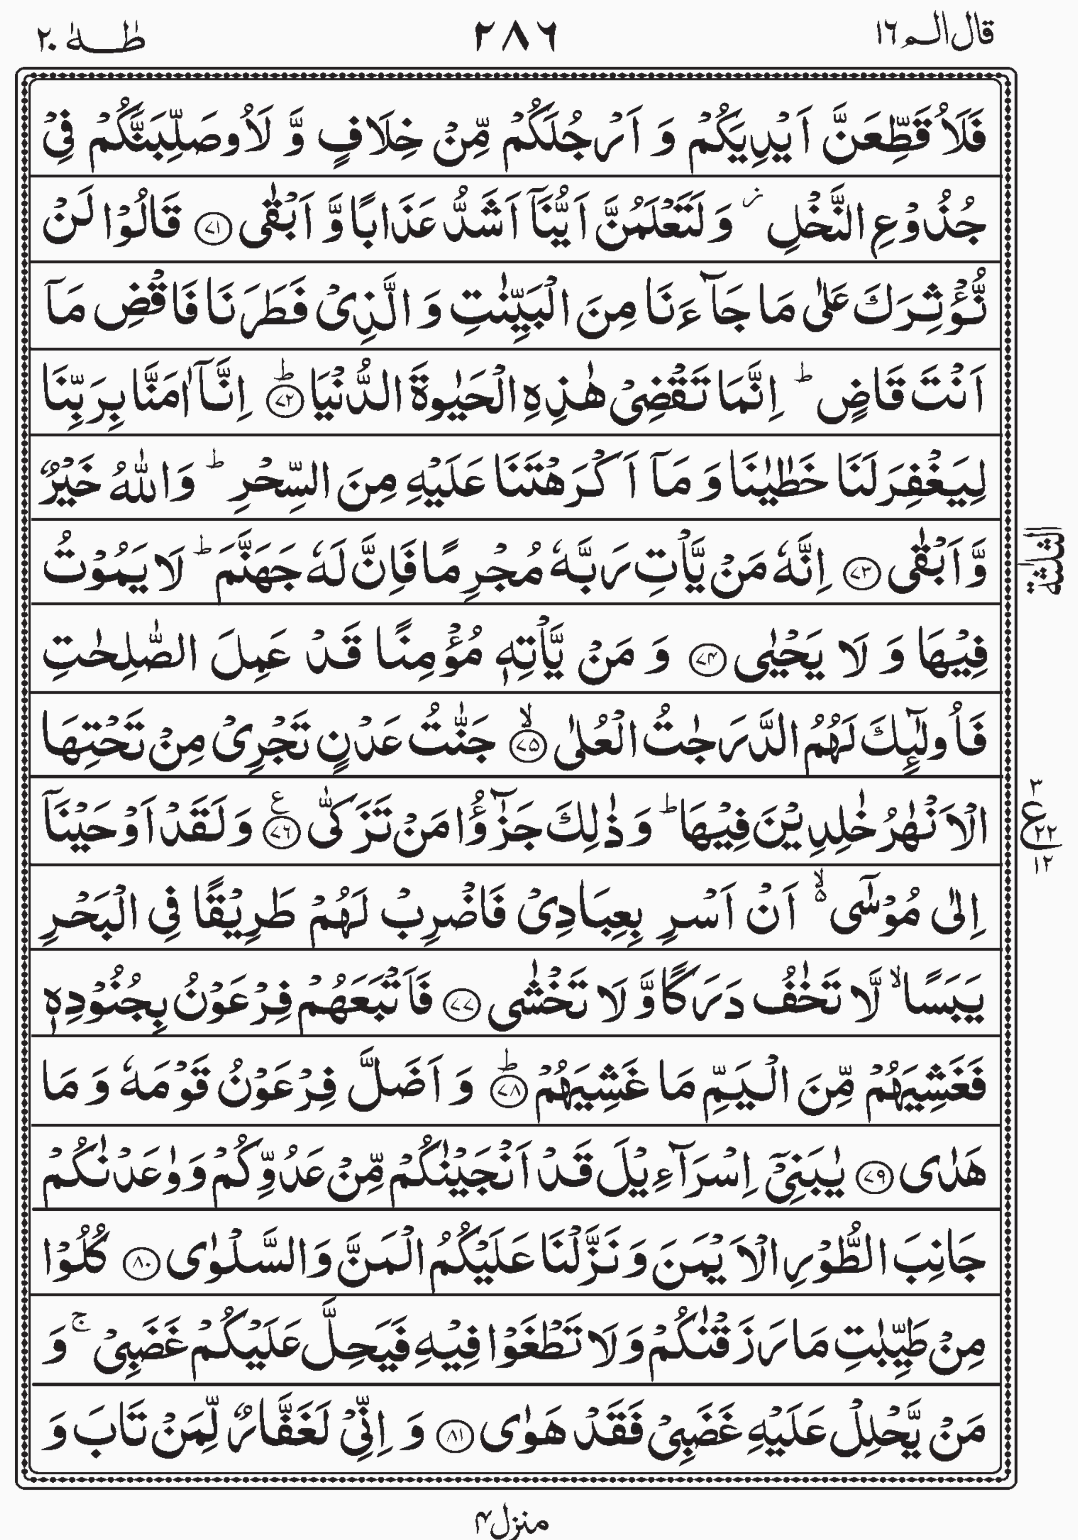 قال الم ١٦ ٢٨٦ طٰهٰ ٢٠
فَلَاُقَطِّعَنَّ اَيْدِيَكُمْ وَ اَرْجُلَكُمْ مِّنْ خِلَافٍ وَّ لَاُوصَلِّبَنَّكُمْ فِيْ
جُذُوْعِ النَّخْلِ ؗ وَلَتَعْلَمُنَّ اَيُّنَاۤ اَشَدُّ عَذَابًا وَّ اَبْقٰى ﴿۷۱﴾ قَالُوْا لَنْ
نُّؤْثِرَكَ عَلٰى مَا جَآءَنَا مِنَ الْبَيِّنٰتِ وَ الَّذِيْ فَطَرَنَا فَاقْضِ مَاۤ
اَنْتَ قَاضٍ ؕ اِنَّمَا تَقْضِيْ هٰذِهِ الْحَيٰوةَ الدُّنْيَا ﴿۷۲﴾ؕ اِنَّاۤ اٰمَنَّا بِرَبِّنَا
لِيَغْفِرَ لَنَا خَطٰيٰنَا وَ مَاۤ اَكْرَهْتَنَا عَلَيْهِ مِنَ السِّحْرِ ؕ وَاللّٰهُ خَيْرٌ
وَّ اَبْقٰى ﴿۷۳﴾ اِنَّهٗ مَنْ يَّاْتِ رَبَّهٗ مُجْرِمًا فَاِنَّ لَهٗ جَهَنَّمَ ؕ لَا يَمُوْتُ
فِيْهَا وَ لَا يَحْيٰى ﴿۷۴﴾ وَ مَنْ يَّاْتِهٖ مُؤْمِنًا قَدْ عَمِلَ الصّٰلِحٰتِ
فَاُولٰٓئِكَ لَهُمُ الدَّرَجٰتُ الْعُلٰى ﴿۷۵﴾ۙ جَنّٰتُ عَدْنٍ تَجْرِيْ مِنْ تَحْتِهَا
الْاَنْهٰرُ خٰلِدِيْنَ فِيْهَا ؕ وَ ذٰلِكَ جَزٰٓؤُا مَنْ تَزَكّٰى ﴿۷۶﴾ع وَ لَقَدْ اَوْحَيْنَاۤ
اِلٰى مُوْسٰۤى ۙ۬ اَنْ اَسْرِ بِعِبَادِيْ فَاضْرِبْ لَهُمْ طَرِيْقًا فِي الْبَحْرِ
يَبَسًا ۙ لَّا تَخٰفُ دَرَكًا وَّ لَا تَخْشٰى ﴿۷۷﴾ فَاَتْبَعَهُمْ فِرْعَوْنُ بِجُنُوْدِهٖ
فَغَشِيَهُمْ مِّنَ الْيَمِّ مَا غَشِيَهُمْ ﴿۷۸﴾ؕ وَ اَضَلَّ فِرْعَوْنُ قَوْمَهٗ وَ مَا
هَدٰى ﴿۷۹﴾ يٰبَنِيْۤ اِسْرَآءِيْلَ قَدْ اَنْجَيْنٰكُمْ مِّنْ عَدُوِّكُمْ وَ وٰعَدْنٰكُمْ
جَانِبَ الطُّوْرِ الْاَيْمَنَ وَ نَزَّلْنَا عَلَيْكُمُ الْمَنَّ وَالسَّلْوٰى ﴿۸۰﴾ كُلُوْا
مِنْ طَيِّبٰتِ مَا رَزَقْنٰكُمْ وَ لَا تَطْغَوْا فِيْهِ فَيَحِلَّ عَلَيْكُمْ غَضَبِيْ ۚ وَ
مَنْ يَّحْلِلْ عَلَيْهِ غَضَبِيْ فَقَدْ هَوٰى ﴿۸۱﴾ وَ اِنِّيْ لَغَفَّارٌ لِّمَنْ تَابَ وَ
الثلثة
٣
ع
٢٢
١٢
منزل ۴